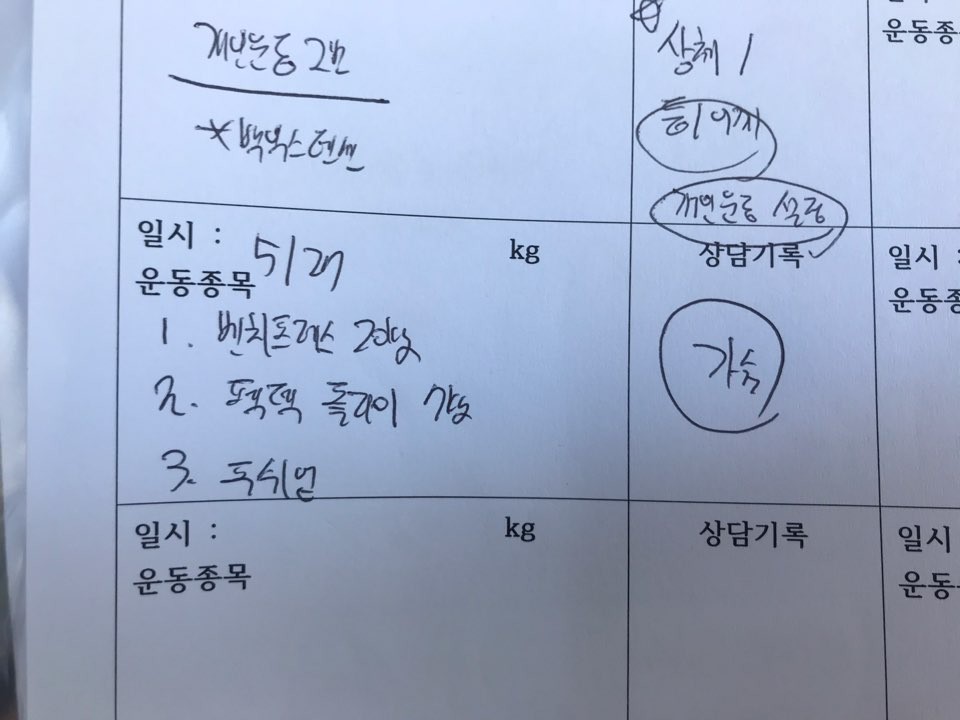 개인운동 2번
*백익스텐션
상체 1
개인운동 설명
운동종
일시 :
5/27
kg
운동종목
1. 벤치프레스 20회
2. 펙덱 플라이 가능
3. 푸쉬업
상담기록
가슴
일시 :
운동종
일시 :
kg
운동종목
상담기록
일시
운동